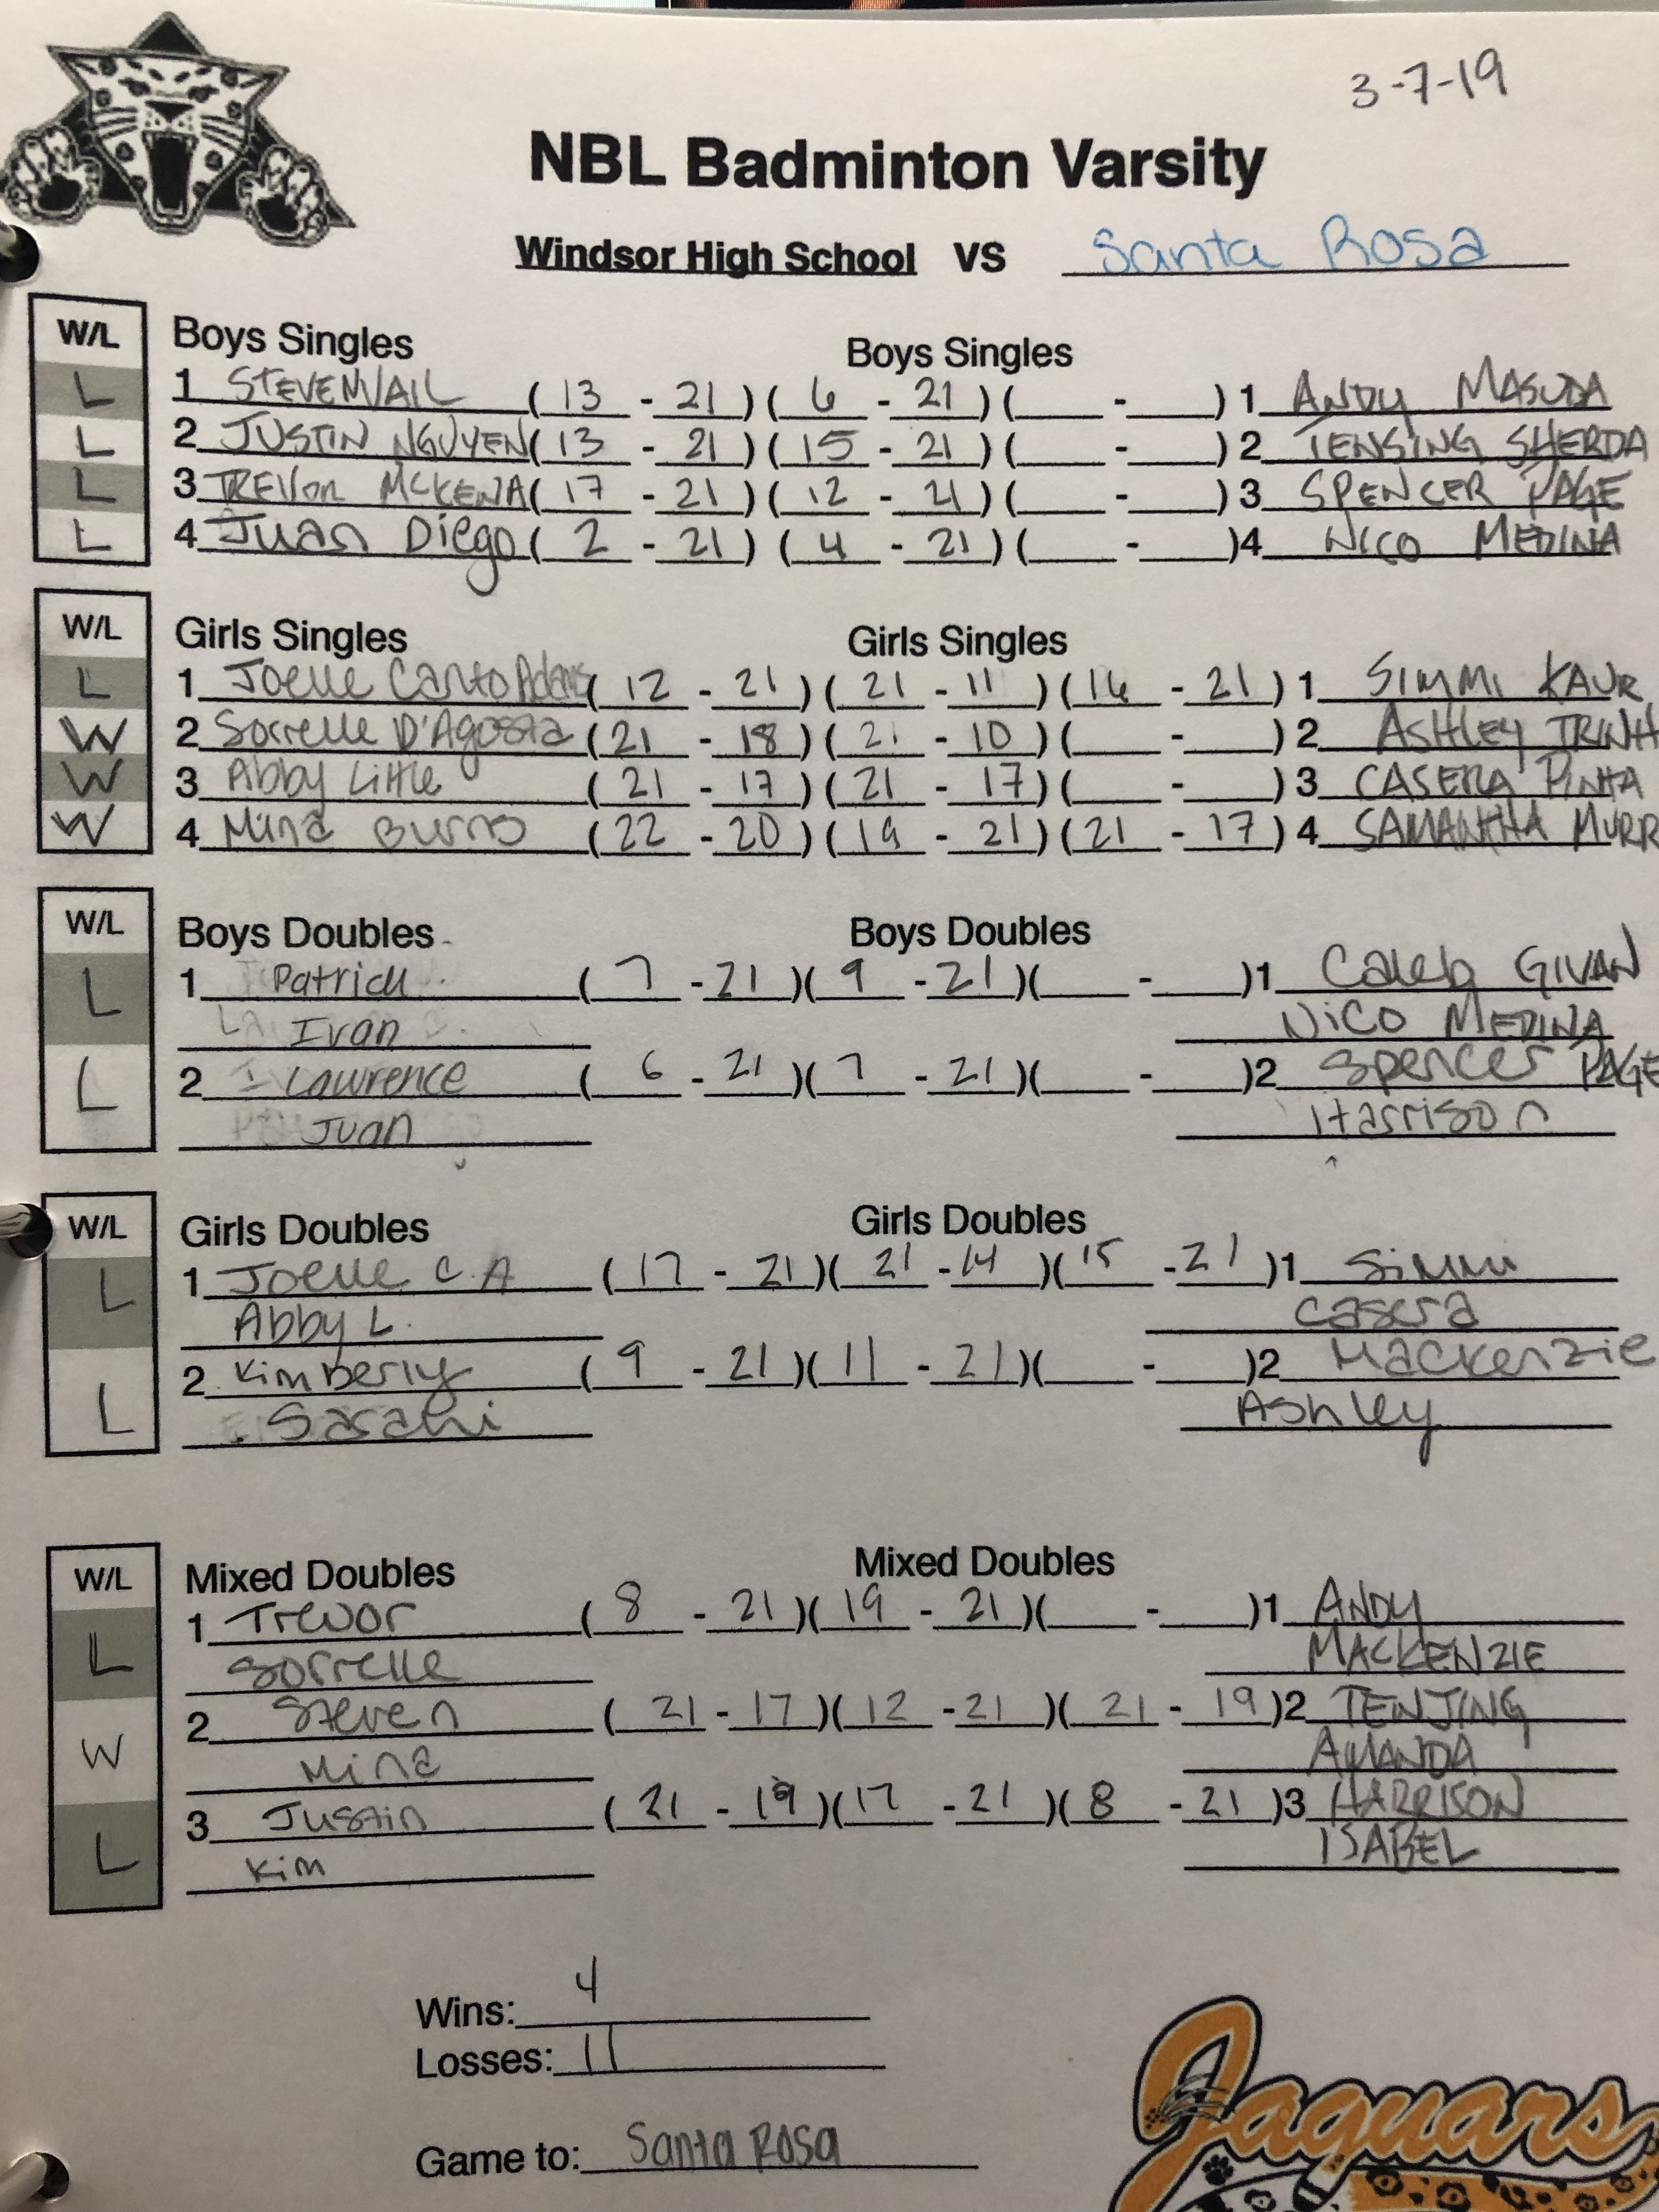 3-7-19
NBL Badminton Varsity
Windsor High School VS Santa Rosa
W/L Boys Singles Boys Singles
L 1 STEVEN VAIL (13 - 21) (6 - 21) ( - ) 1 ANDY MASUDA
L 2 JUSTIN NGUYEN (13 - 21) (15 - 21) ( - ) 2 TENSING SHERDA
L 3 TREVOR MCKENA (17 - 21) (12 - 21) ( - ) 3 SPENCER PAGE
L 4 Juan Diego (2 - 21) (4 - 21) ( - ) 4 NICO MEDINA
W/L Girls Singles Girls Singles
L 1 Joelle Canto Adams (12 - 21) (21 - 11) (16 - 21) 1 SIMMI KAUR
W 2 Sorrelle D'Agosta (21 - 18) (21 - 10) ( - ) 2 ASHLEY TRINH
W 3 Abby Little (21 - 17) (21 - 17) ( - ) 3 CASERA PINHA
W 4 Mina Burns (22 - 20) (19 - 21) (21 - 17) 4 SAMANTHA MURR
W/L Boys Doubles Boys Doubles
L 1 Patrick (7 - 21) (9 - 21) ( - ) 1 Caleb GIVAN
Ivan NICO MEDINA
L 2 Lawrence (6 - 21) (7 - 21) ( - ) 2 Spencer PAGE
Juan Harrison
W/L Girls Doubles Girls Doubles
L 1 Joelle C.A (17 - 21) (21 - 14) (15 - 21) 1 Simmi
Abby L. Casera
L 2 Kimberly (9 - 21) (11 - 21) ( - ) 2 Mackenzie
Sarahi Ashley
W/L Mixed Doubles Mixed Doubles
L 1 Trevor (8 - 21) (19 - 21) ( - ) 1 ANDY
Sorrelle MACKENZIE
W 2 Steven (21 - 17) (12 - 21) (21 - 19) 2 TENJING
Mina AMANDA
L 3 Justin (21 - 19) (17 - 21) (8 - 21) 3 HARRISON
Kim ISABEL
Wins: 4
Losses: 11
Game to: Santa Rosa
Jaguars